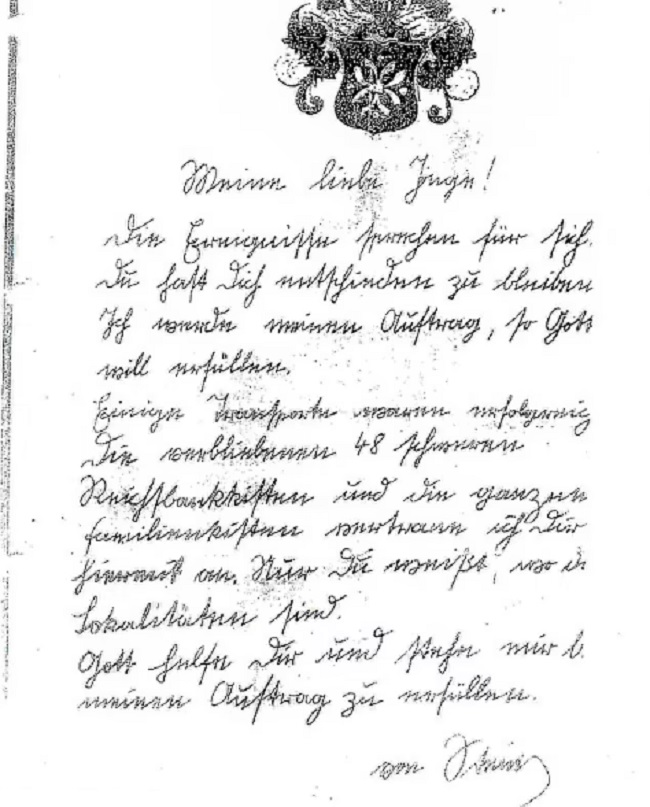 Meine liebe Inge!
Die Ereignisse sprechen für sich.
Du hast Dich entschieden zu bleiben
Ich werde meinen Auftrag, so Gott
will erfüllen.
Einige Transporte waren erfolgreic
Die verbliebenen 48 schweren
Reichsbankkisten und die ganzen
Familienkisten vertraue ich Dir
hiermit an. Nur Du weißt, wo d
Lokalitäten sind.
Gott helfe Dir und stehe mir b.
meinen Auftrag zu erfüllen.
von